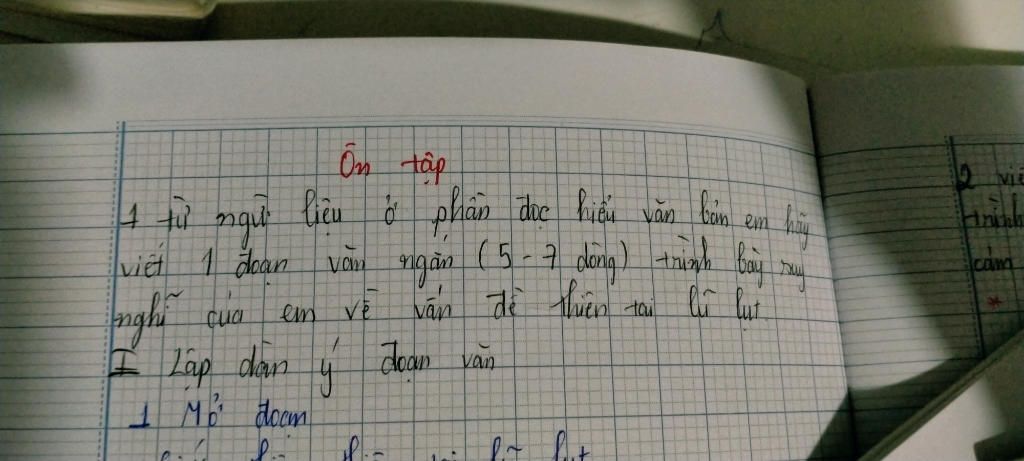 Ôn tập
1 từ ngữ liệu ở phần đọc hiểu văn bản em hãy
viết 1 đoạn văn ngắn (5-7 dòng) trình bày suy
nghĩ của em về vấn đề thiên tai lũ lụt
I Lập dàn ý đoạn văn
1 Mở đoạn
lũ lụt
2 viế
trình
cảm
*